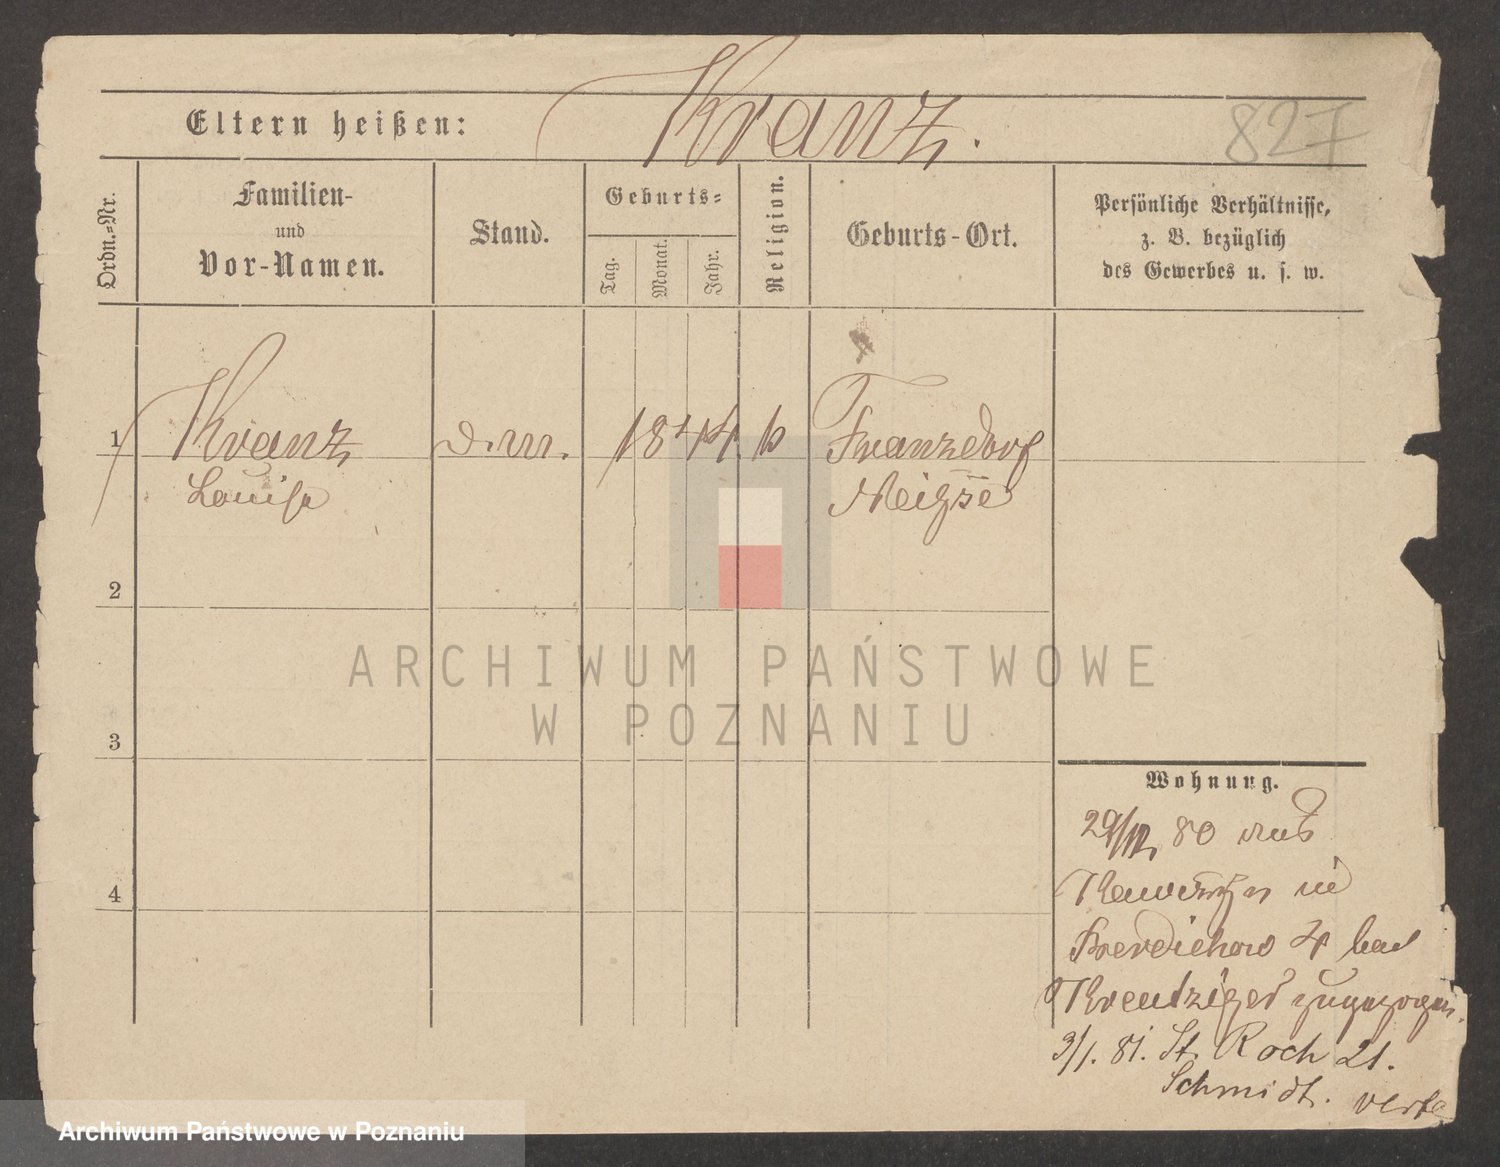 Eltern heißen: Kranz. 827
Ordn.=Nr.
Familien-
und
Vor-Namen.
Stand.
Geburts=
Tag.
Monat.
Jahr.
Religion.
Geburts-Ort.
Persönliche Verhältnisse,
z. B. bezüglich
des Gewerbes u. s. w.
1 Kranz 1844 k Franzdorf
Louise Neiße
2
3
4
Wohnung.
29/12 80 aus
in
Berdichowo 4 bei
Kreutziger zugezogen.
3/1. 81. St. Roch 21.
Schmidt. verte
ARCHIWUM PAŃSTWOWE
W POZNANIU
Archiwum Państwowe w Poznaniu